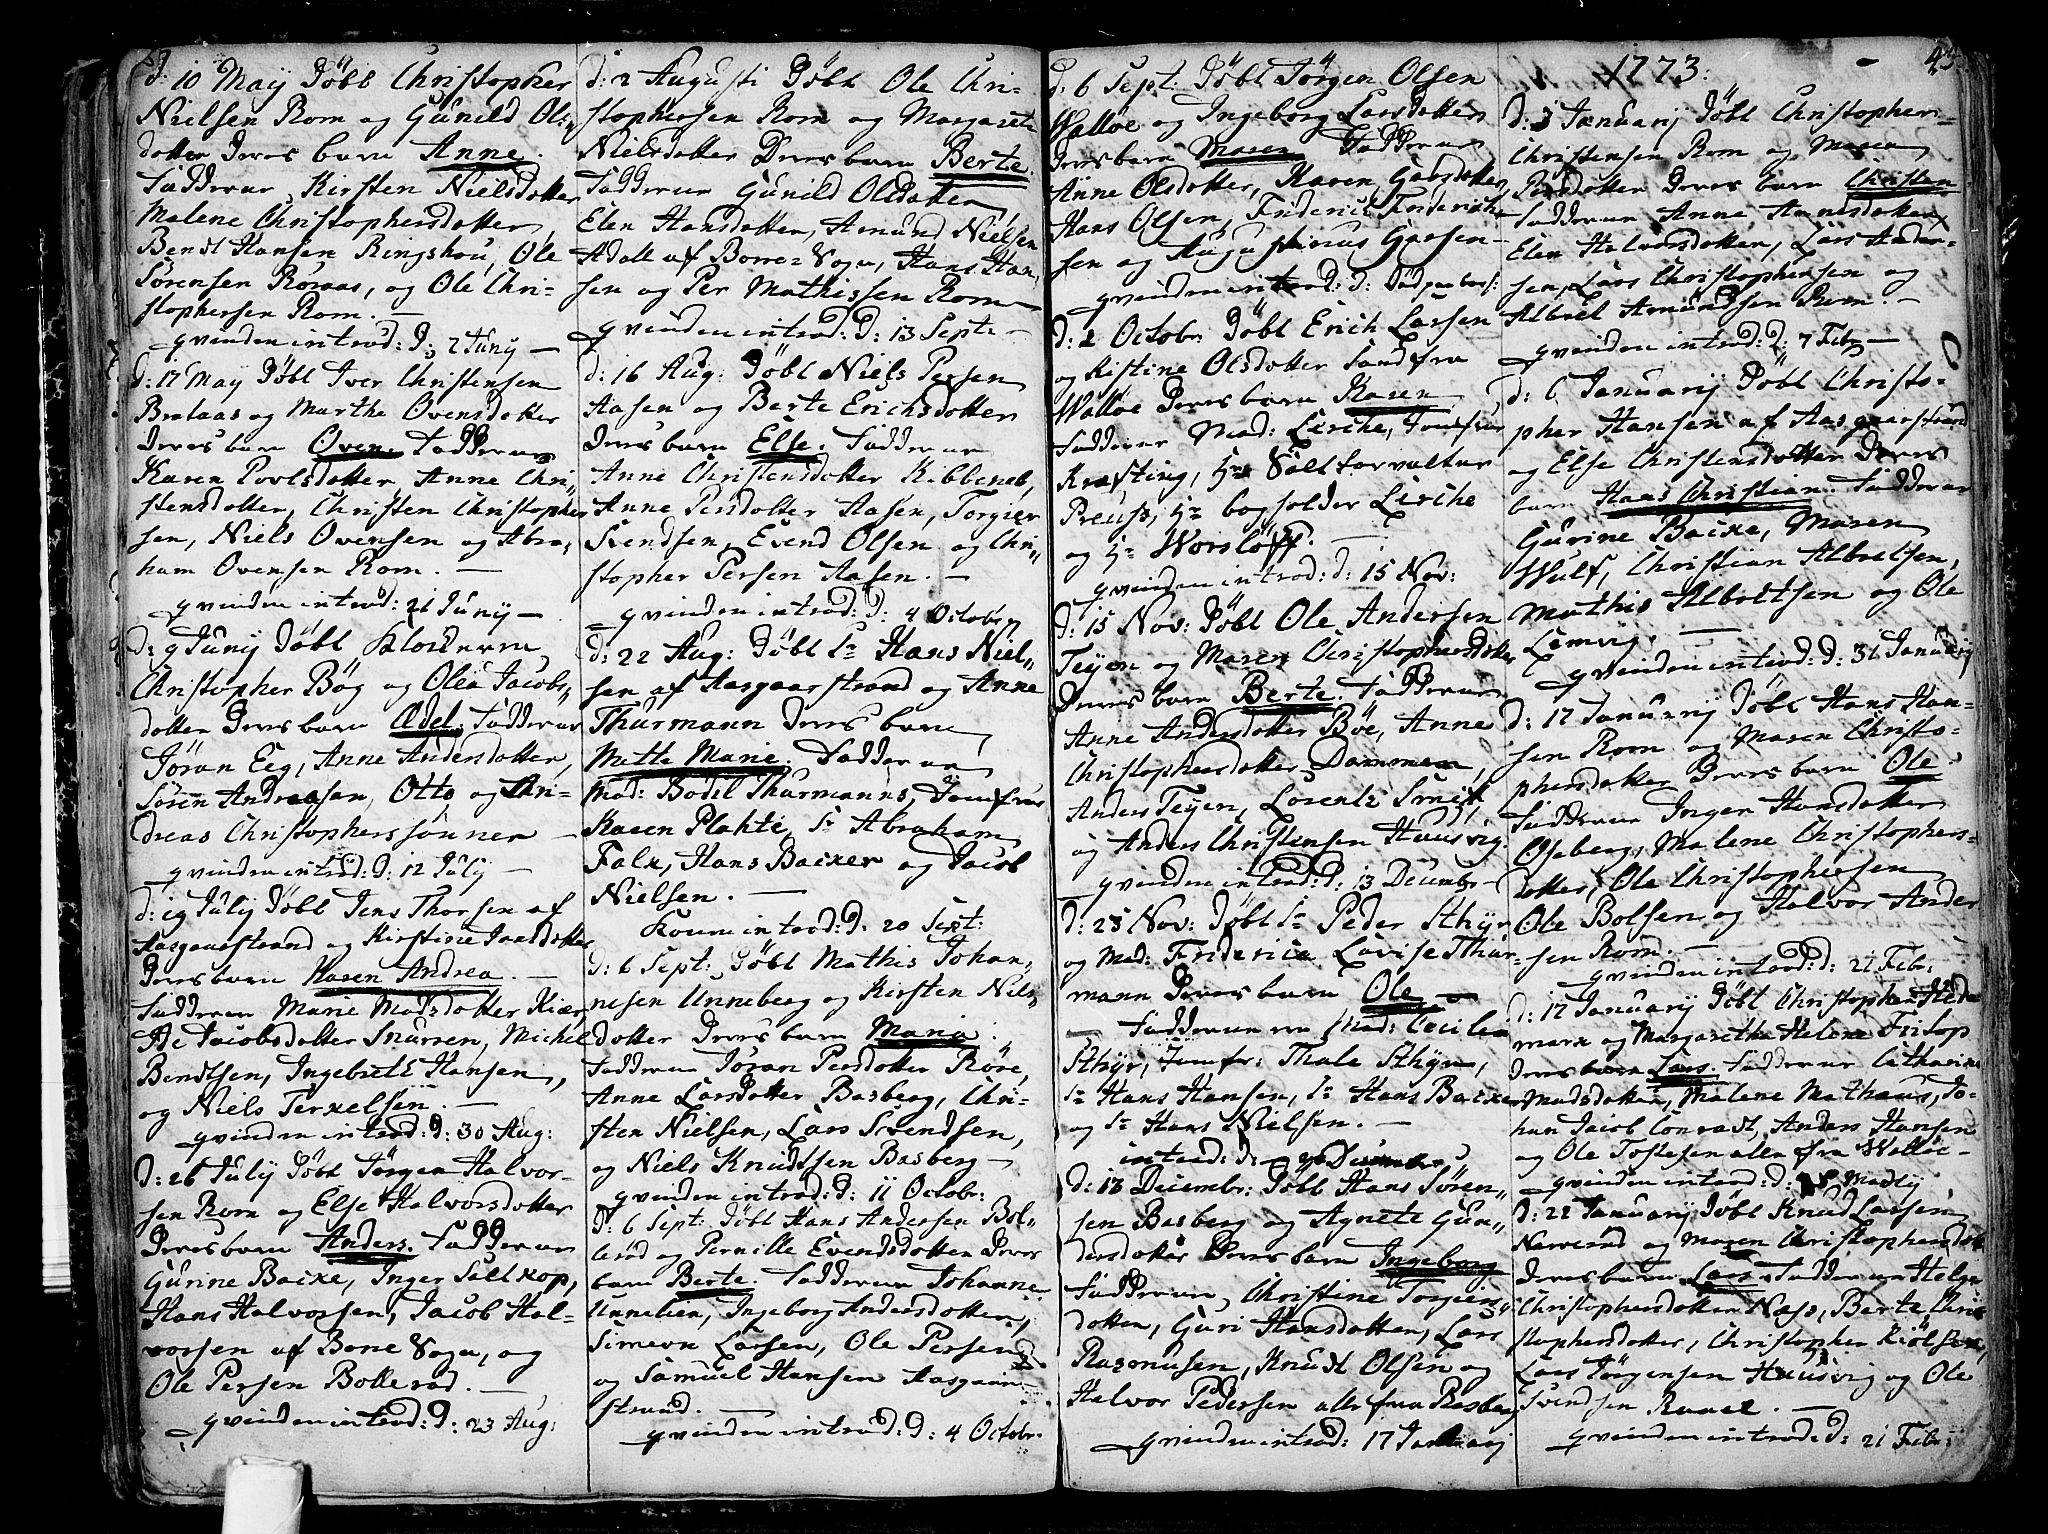 d: 10 Maÿ Döbt Christopher
Nielsen Rom og Gunild Ols-
dotter Deres barn Anne.
Fadderne Kirsten Nielsdotter
Malene Christophersdotter,
Bendt Hansen Ringshou, Ole
Sörensen Röraas, og Ole Chri-
stophersen Rom. —
qvinden introd: D: 2 Junÿ —
d: 17 May Döbt Iver Christensen
Brataas og Marthe Ovensdotter
Deres barn Oven. Fadderne
Karen Povlsdotter Anne Chri-
stensdotter, Christen Christopher
sen, Niels Ovensen og Abra-
ham Ovensen Rom. —
qvinden introd: 21 Junÿ —
d: 9 Junÿ Döbt Klokkeren
Christopher Bög og Olea Jacobs-
dotter Deres barn Ædel. Fadderne
Jöran Eeg, Anne Andersdotter,
Sören Andreasen, Otto og An-
dreas Christopherssönner —
qvinden introd: D: 12 Julÿ —
d: 19 Julÿ Döbt Jens Thorsen af
Aasgaardstrand og Kirstine Jensdotter
Deres barn Karen Andrea. —
Fadderne Marie Madsdotter Kiær
Jacobsdotter Snurren, Michel
Bendtsen, Ingebret Hansen,
og Niels Terkelsen. —
qvinden introd: D: 30 Aug:
d: 26 Julÿ Döbt Jörgen Halvor-
sen Rom og Else Halvorsdotter
Deres barn Anders. Fadderne
Gurine Backe, Inger Saltkop,
Hans Halvorsen, Jacob Hal-
vorsen af Borre Sogn, og
Ole Persen Bollerød. —
qvinden introd: D: 23 Aug:
d: 2 Augusti Döbt Ole Chri-
stophersen Rom og Margarete
Nielsdotter Deres barn Berte.
Fadderne Gunild Olsdotter
Elen Hansdotter, Amund Nielsen
Adall af Borre Sogn, Hans Han-
sen og Per Mathissen Rom —
qvinden introd: D: 13 Septr —
d: 16 Aug: Döbt Niels Persen
Aasen og Berte Erichsdotter
Deres barn Else. Fadderne
Anne Christensdotter
Anne Persdotter Aasen, Torgier
Svendsen, Evend Olsen og Chri-
stopher Persen Aasen. —
qvinden introd: D: 4 Octobr
d: 22 Aug: Döbt Sr Hans Niel-
sen af Aasgaarstrand og Anne
Thurmann Deres barn
Mette Marie. Fadderne
Mad: Bodil Thurmanns, Jomfrue
Karen Plahte, Sr Abraham
Falk, Hans Backer og Jacob
Nielsen. —
Konen introd: D: 20 Sept:
d: 6 Sept: Döbt Mathis Johan-
nesen Unneberg og Kirsten Niels-
dotter Deres barn Maria.
Fadderne Jöran Persdotter Röre,
Anne Larsdotter Basberg, Chri-
sten Nielsen, Lars Svendsen,
og Niels Knudtsen Basberg —
qvinden introd: D: 11 Octobr:
d: 6 Sept: Döbt Hans Andersen Bol-
lerød og Pernille Evendsdotter Deres
barn Berte. Fadderne Johanne
Unnelien, Ingeborg Andersdotter,
Simeon Larsen, Ole Persen
og Samuel Hansen Aasgaar-
strand. —
qvinden introd: D: 4 Octobr.
d: 6 Sept: Döbt Jörgen Olsen
Walløe og Ingeborg Larsdotter
Deres barn Maren. Fadderne
Anne Olsdotter, Karen Garsdotter,
Hans Olsen, Friderich Friderich-
sen og Augustinus Garsen —
qvinden introd: D:
d: 2 Octobr: Döbt Erich Larsen
og Kistine Olsdotter Sand fra
Walløe Deres barn Karen
Fadderne Mad: Lirche, Jomfrue
Kræfting, Hr Saltforvalter
Preuss, Hr bogholder Lirche
og Hr Worslöff. —
qvinden introd: d: 15 Nov:
d: 15 Nov: Döbt Ole Andersen
Teÿen og Maren Christophersdotter
Deres barn Berte. Fadderne
Anne Andersdotter Böe, Anne
Christophersdotter Dammen,
Anders Teÿen, Lorentz Smed,
og Anders Christensen Huusvig.
qvinden introd: D: 13 Decembr —
d: 25 Nov: Döbt Sr Peder Sthÿr
og Mad: Friderica Lovise Thur-
mann Deres barn Ole —
Fadderne ere Mad: Cecilia
Sthÿr, Jomfr: Thale Sthÿr,
Sr Hans Hansen, Sr Hans Backer,
og Sr Hans Nielsen. —
introd: d:
d: 13 Decembr: Döbt Hans Sören-
sen Basberg og Agnete Gun-
dersdotter Deres barn Ingeborg
Fadderne, Christine Torgiers-
dotter, Guri Hansdotter, Lars
Rasmusen, Knudt Olsen og
Halvor Pedersen alle fra Basberg
qvinden introd: 17 Januarj
1773. — 45
d: 3 Januarij Döbt Christopher
Christensen Rom og Maren
Persdotter Deres barn Christen
Fadderne Anne Amundsdotter,
Elen Halvorsdotter, Lars Ander-
sen, Lars Christophersen og
Albret Amundsen Rom. —
qvinden introd: D: 7 Febr —
d: 6 Januarij Döbt Christo-
pher Hansen af Aasgaarstrand
og Else Christensdotter Deres
barn Hans Christian. Fadderne
Gurine Backe, Maren
Wulf, Christian Albretsen,
Mathis Albretsen og Ole
Lemvig. —
qvinden introd: D: 31 Januarij
d: 17 Januarij Döbt Hans Han-
sen Rom og Maren Christo-
phersdotter Deres barn Ole
Fadderne Inger Hansdotter
Oseberg, Malene Christophers-
dotter, Ole Christophersen
Ole Bolsen og Halvor Ander
sen Rom. —
qvinden introd: d: 21 Febr:
d: 17 Januarij Döbt Christopher Hede
marx og Margaretha Helene Fritsop
Deres barn Lars. Fadderne Catharine
Madsdotter, Malene Mathæus, Jo-
han Jacob Conradt, Anders Hansen
og Ole Tostesen alle fra Walløe —
qvinden introd: d:
d: 22 Januarij Döbt Knud Larsen
Narverød og Maren Christophersdotter
Deres barn Lars. Fadderne Helge
Christophersdotter Næss, Berte Chri-
stophersdotter, Christopher Kiölsen,
Lars Jörgensen Huusvig og Ole
Svendsen —
qvinden introd: D: 21 Febr: